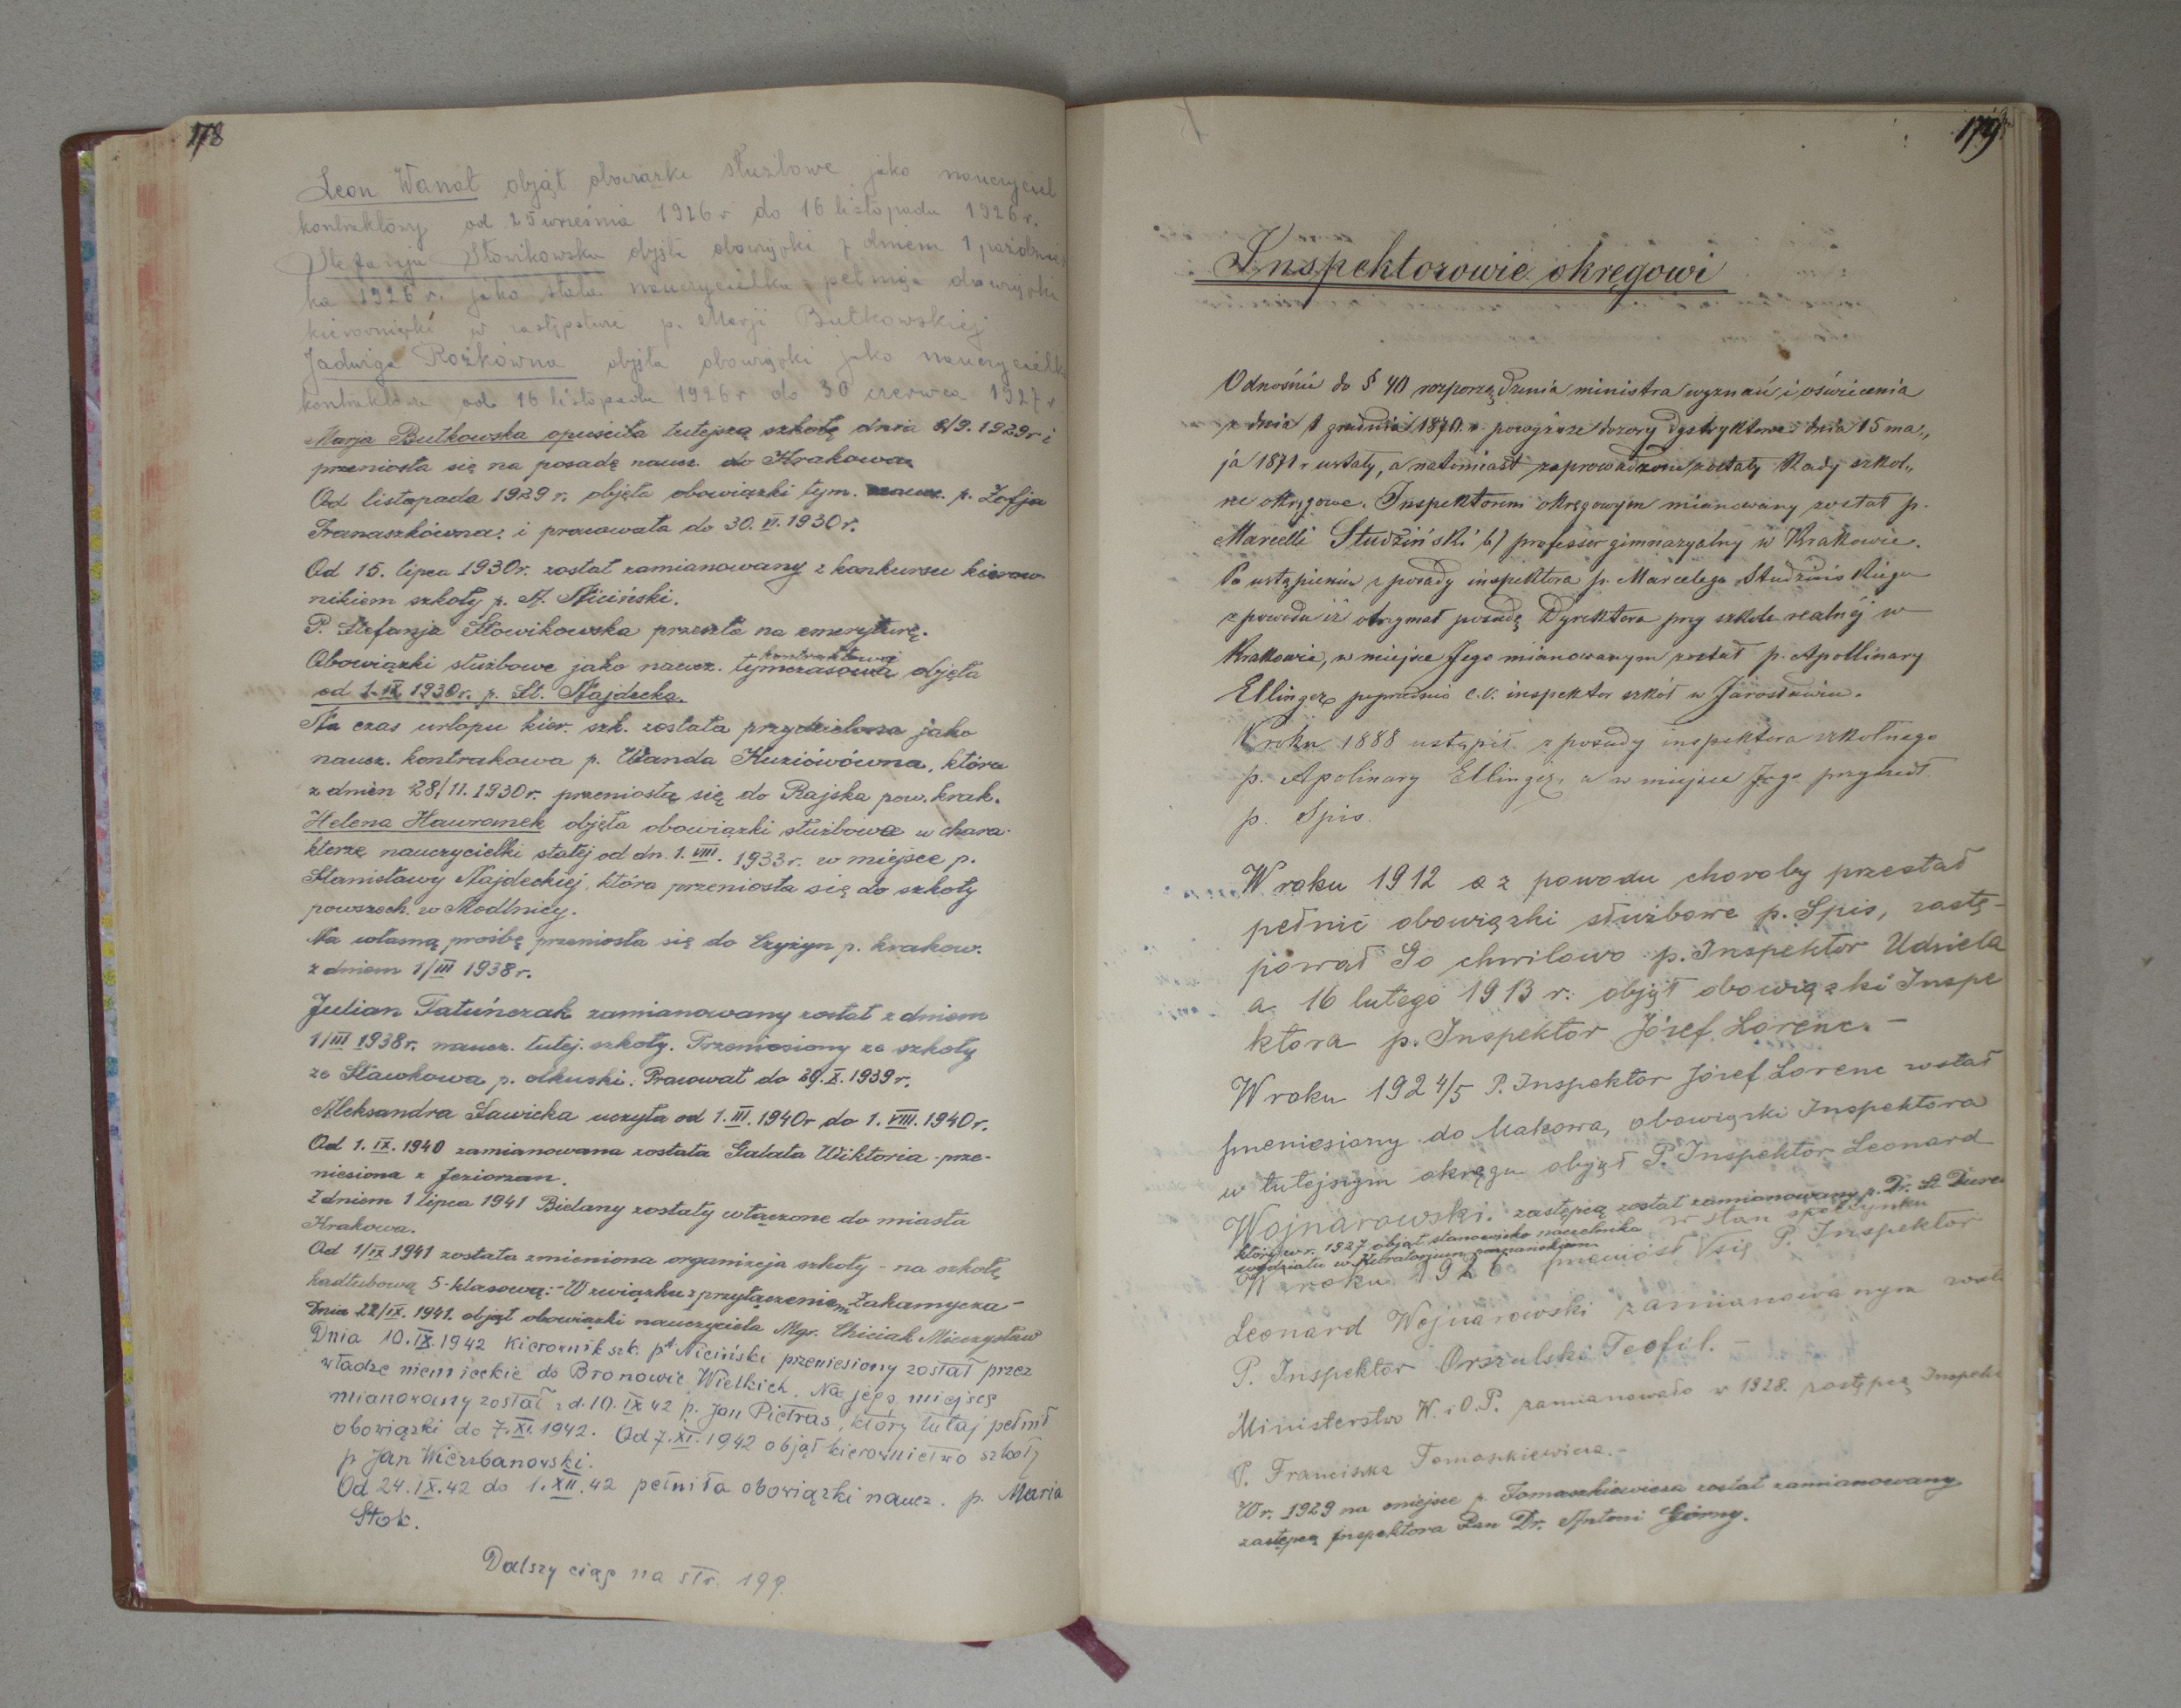 178
Leon Wanat objął obowiązki służbowe jako nauczyciel
kontraktowy od 25 września 1926 r do 16 listopada 1926 r.
Stefanja Słowikowska objęła obowiązki z dniem 1 paździer
ka 1926 r. jako stała nauczycielka i pełniąc obowiązki
kierowniczki w zastępstwie p. Marji Butkowskiej
Jadwiga Rożkówna objęła obowiązki jako nauczycielk
kontraktowa od 16 listopada 1926 r do 30 czerwca 1927 r
Marja Butkowska opuściła tutejszą szkołę dnia 8/9. 1929 r i
przeniosła się na posadę naucz. do Krakowa.
Od listopada 1929 r. objęła obowiązki tym. naucz. p. Zofja
Franaszkówna. i pracowała do 30. VI. 1930 r.
Od 15. lipca 1930 r. został zamianowany z konkursu kierow-
nikiem szkoły p. A. Niciński.
P. Stefanja Słowikowska przeszła na emeryturę.
Obowiązki służbowe jako naucz. tymczasowa kontraktowej objęła
od 1. IX. 1930 r. p. St. Najdecka.
Na czas urlopu kier. szk. została przydzielona jako
naucz. kontrakowa p. Wanda Kuziówówna, która
z dnien 28/11. 1930 r. przeniosłą się do Rajska pow. krak.
Helena Hawranek objęła obowiązki służbowe w chara-
kterzę nauczycielki stałej od dn. 1. VIII. 1933 r. w miejsce p.
Stanisławy Najdeckiej, która przeniosła się do szkoły
powszech. w Modlnicy.
Na własną prośbę przeniosła się do Czyżyn p. krakow.
z dniem 1/III 1938 r.
Julian Tatuńczak zamianowany został z dniem
1/III 1938 r. naucz. tutej. szkoły. Przeniesiony ze szkoły
ze Sławkowa p. olkuski. Pracował do 29. X. 1939 r.
Aleksandra Sawicka uczyła od 1. III. 1940 r do 1. VIII. 1940 r.
Od 1. IX. 1940 zamianowana została Galata Wiktoria - prze-
niesiona z Jeziorzan.
Z dniem 1 lipca 1941 Bielany zostały włączone do miasta
Krakowa.
Od 1/IX 1941 została zmieniona organizacja szkoły - na szkołę
kadłubową 5-klasową. - W związku z przyłączeniem Zakamycza -
Dnia 22/IX. 1941. objął obowiązki nauczyciela Mgr. Chiciak Mieczysław
Dnia 10. IX. 1942 Kierownik szk. p. A Niciński przeniesiony został przez
władze niemieckie do Bronowic Wielkich. Na jego miejsce
mianowany został z d. 10. IX 42 p. Jan Pietras, który tutaj pełnił
obowiązki do 7. XI. 1942. Od 7. XI. 1942 objął kierownictwo szkoły
p Jan Wierzbanowski.
Od 24. IX. 42 do 1. XII. 42 pełniła obowiązki naucz. p. Maria
Stok.
Dalszy ciąg na str. 199.
179
Inspektorowie okręgowi
Odnośnie do § 40 rozporządzenia ministra wyznań i oświecenia
z dnia 1 grudnia 1870. r powyższe dozory dystryktowe dnia 15 ma„
ja 1871 r ustały, a natomiast zaprowadzone zostały Rady szkol„
ne okręgowe. Inspektorem okręgowym mianowany został p.
Marcelli Studziński b) professor gimnazyalny w Krakowie.
Po ustąpieniu z posady inspektora p. Marcelego Studzińskiego
z powodu iż otrzymał posadę Dyrektora przy szkole realnéj w
Krakowie, w miejsce Jego mianowanym został p. Apollinary
Ellinger poprzednio c. k. inspektor szkół w Jarosławiu.
W roku 1888 ustąpił z posady inspektora szkolnego
p. Apolinary Ellinger, a w miejsce Jego przyszedł
p. Spis.
W roku 1912 z powodu choroby przestał
pełnić obowiązki służbowe p. Spis, zastę-
pował Go chwilowo p. Inspektor Udziela
a 16 lutego 1913 r. objął obowiązki Inspe
ktora p. Inspektor Józef Lorenc. -
W roku 1924/5 P. Inspektor Józef Lorenc został
przeniesiony do Makowa, obowiązki Inspektora
w tutejszym okręgu objął P. Inspektor Leonard
Wojnarowski. zastępcą został zamianowany p. Dr. St.
który w r. 1927 objął stanowisko naczelnika
wydziału w Kuratorjum poznańskiem.
w stan spoczynku
W roku 1926 przeniósł się P. Inspektor
Leonard Wojnarowski zamianowanym zost
P. Inspektor Orszulski Teofil. -
Ministerstwo W. i O. P. zamianowało w 1928. zastępcą Inspekt
P. Franciszka Tomaszkiewicza. -
W r. 1929 na miejsce p. Tomaszkiewicza został zamianowany
zastępcą Inspektora Pan Dr. Antoni Górny.